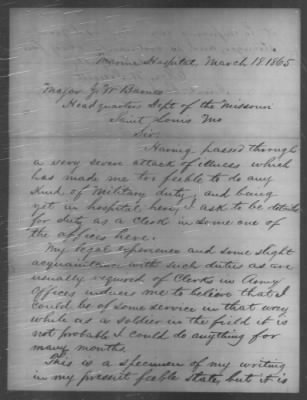 Marine Hospital, March 18 1865
Major J. W. Barnes
Head quarters Dept of the Missouri
Saint Louis Mo
Sir:
Having pass'd through
a very severe attack of illness which
has made me too feeble to do any
kind of Military duty, and being
yet in hospital here, I ask to be detail
for duty as a Clerk in some one of
the offices here.
My legal experience and some slight
acquaintance with such duties as are
usually required of Clerks in Army
Offices induces me to believe that I
could be of some service in that way
while as a soldier in the field it is
not probable I could do anything for
many months.
This is a specimen of my writing
in my present feeble state, but it is